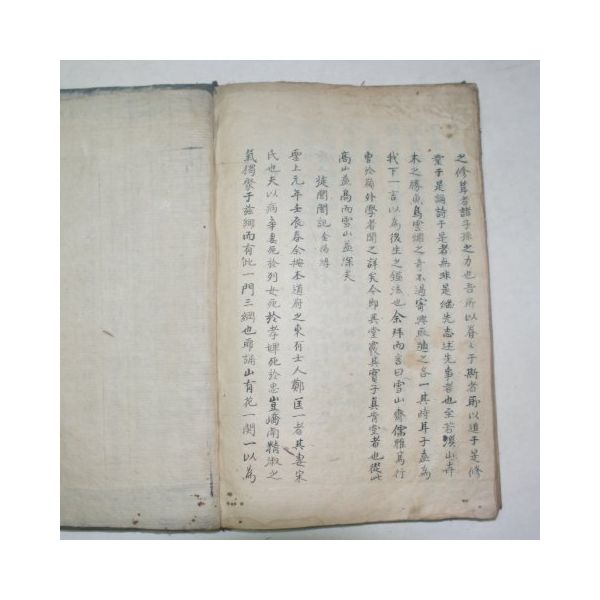 之修葺者諸子孫之力也吾所以眷々于斯者所以道于是修
童于是誦詩于是者無非是继先志述先事者也至若溪山卉
木之勝魚鳥雲烟之奇不過寄興取適之各一其時耳子盍爲
我下一言以爲後生之鑑法也余拜而言曰雪山齋儒雅篤行
曾於獨外學者聞之詳矣今卽其堂覈其實子真肯堂者也從此
高山益高而雪山益深矣
旋閭閣記
聖上元年壬辰春余按本道府之東有士人鄭匡一者其妻宋
氏也夫以病卒妻死於列女死於孝婢死於忠豈嶠南精淑之
氣獨聚于玆鄉而有此一門三綱也耶誦山有花一闋一以爲